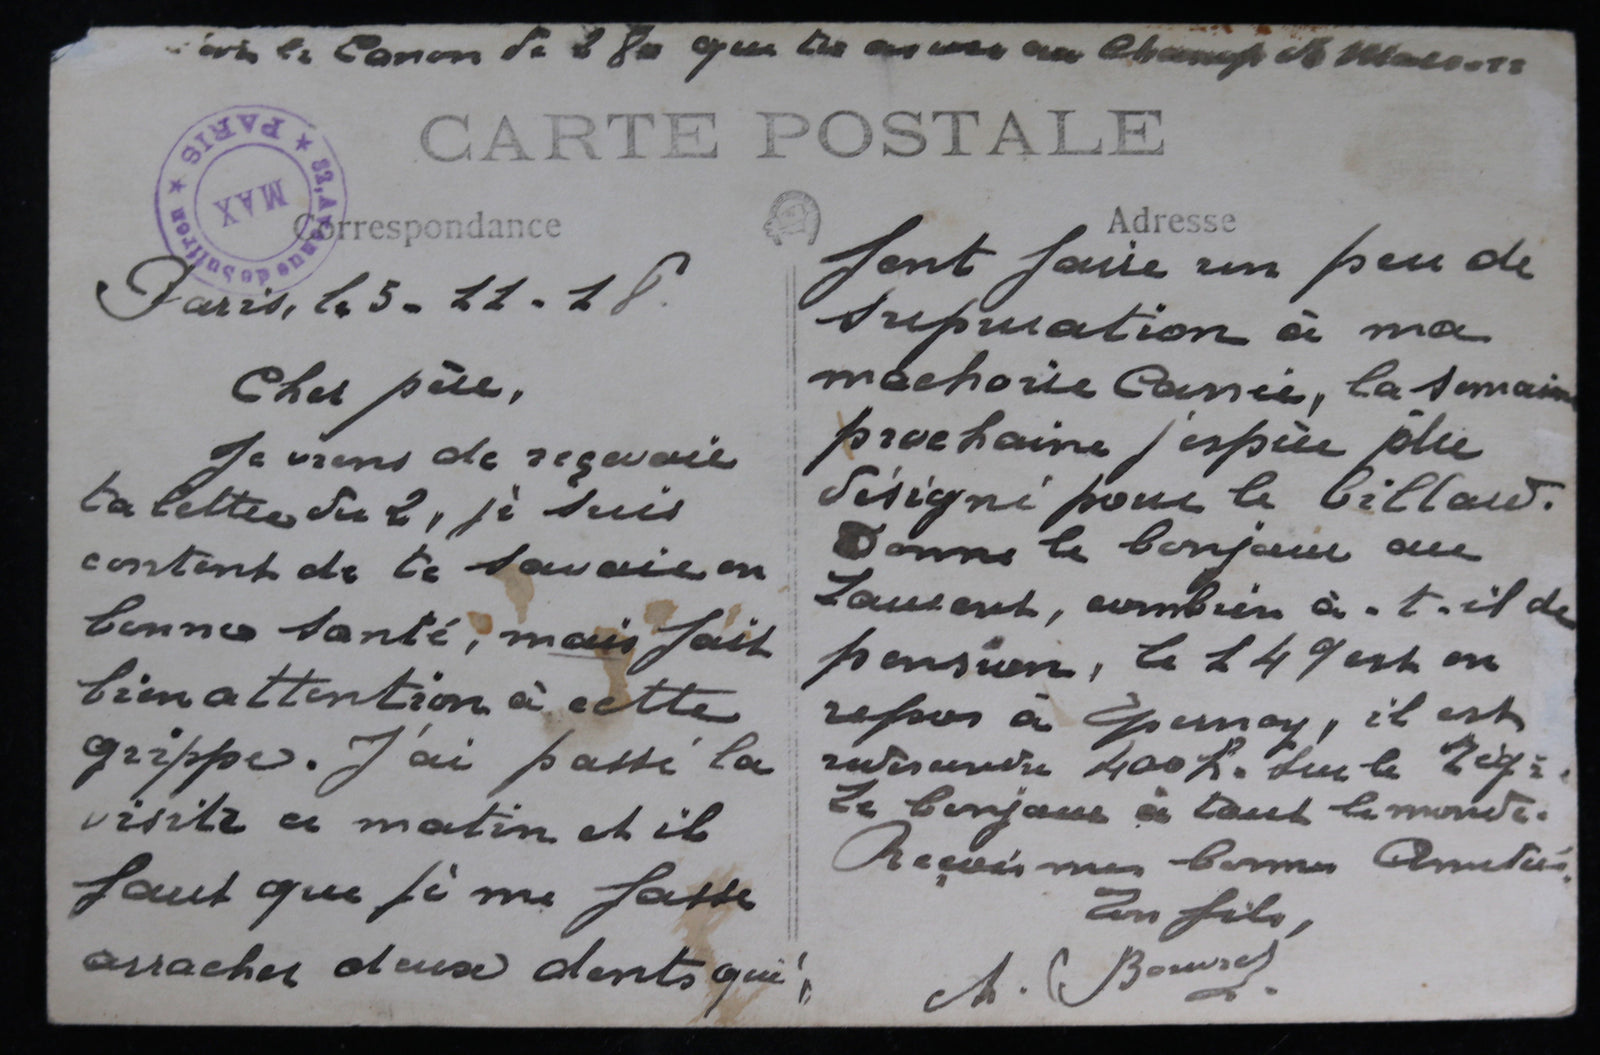 le Canon de 280 que tu as vu au Champ de Mars
CARTE POSTALE
MAX
★ PARIS ★
Avenue de Suffren
Correspondance
Adresse
Paris, le 5-11-18.
Cher père,
Je viens de reçevoir
ta lettre du 2, je suis
content de te savoir en
bonne santé, mais fait
bien attention à cette
grippe. J'ai passé la
visite ce matin et il
faut que je me fasse
arracher deux dents qui,
font faire un peu de
supuration à ma
machoire Cassée, la semaine
prochaine j'espère être
désigné pour le billard.
Donne le bonjour au
Laurent, combien à-t-il de
pension, le 149 est en
repos à Épernay, il est
redescendu 400 h. sur le Rég.
Le bonjour à tout le monde.
Reçois mes bonnes Amitiés.
Ton fils,
A. Bouvret